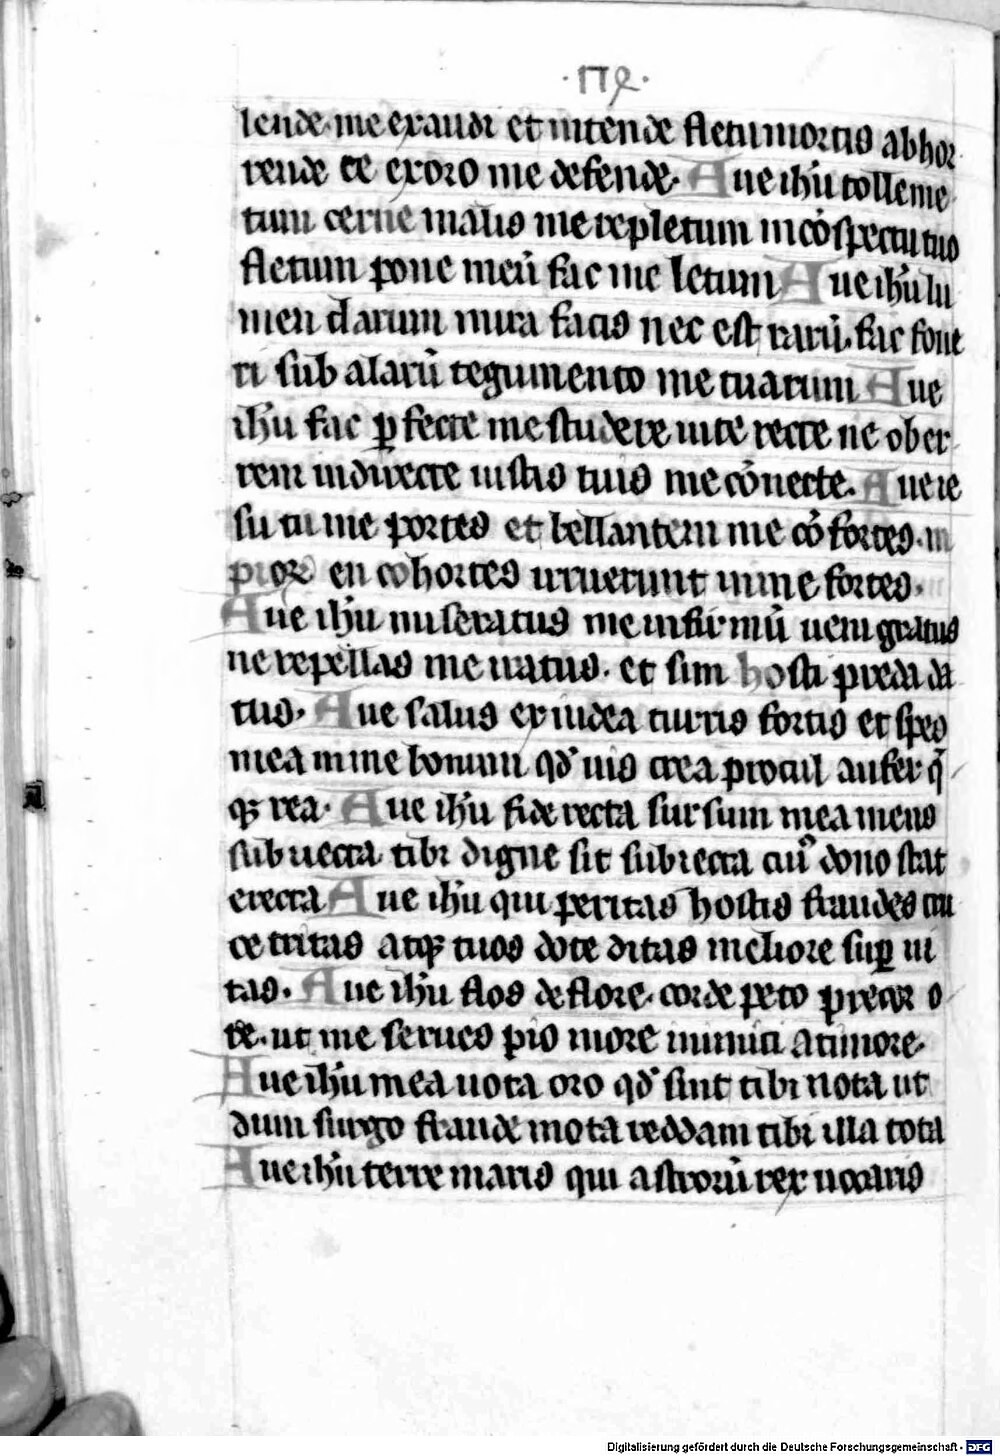 lende. me exaudi et intende fletu mortis abhor
rende te exoro me defende. Aue ihū tolle me
tum cerne malis me repletum in cōspectu tuo
fletum pone meū fac me letum Aue ihū lu
men clarum mira facis nec est rarū. fac foue
ri sub alarū tegumento me tuarum Aue
ihū fac ꝑfecte me studere in te recte ne ober
rem indirecte iustis tuis me cōnecte. Aue ie
su tu me portes et bellantem me cōfortes. im
pioꝝ en cohortes irruerunt in me fortes.
Aue ihū miseratus me infirmū ueni gratus
ne repellas me natus. et sim hosti preda da
tus. Aue salus ex iudea turris fortis et spes
mea in me bonum qd' uis crea procul aufer q̄
qꝫ rea. Aue ihū fide recta sursum mea mens
subuecta tibi digne sit subiecta cui' dono stat
erecta Aue ihū qui peritas hostis fraudes cru
ce tritas atqꝫ tuos dote ditas meliore suꝑ ui
tas. Aue ihū flos de flore. corde peto precor o
re. ut me serues pio more inimici a timore.
Aue ihū mea uota oro qd' sint tibi nota ut
dum surgo fraude mota reddam tibi illa tota
Aue ihū terre maris qui astrorū rex uocaris
Digitalisierung gefördert durch die Deutsche Forschungsgemeinschaft - DFG